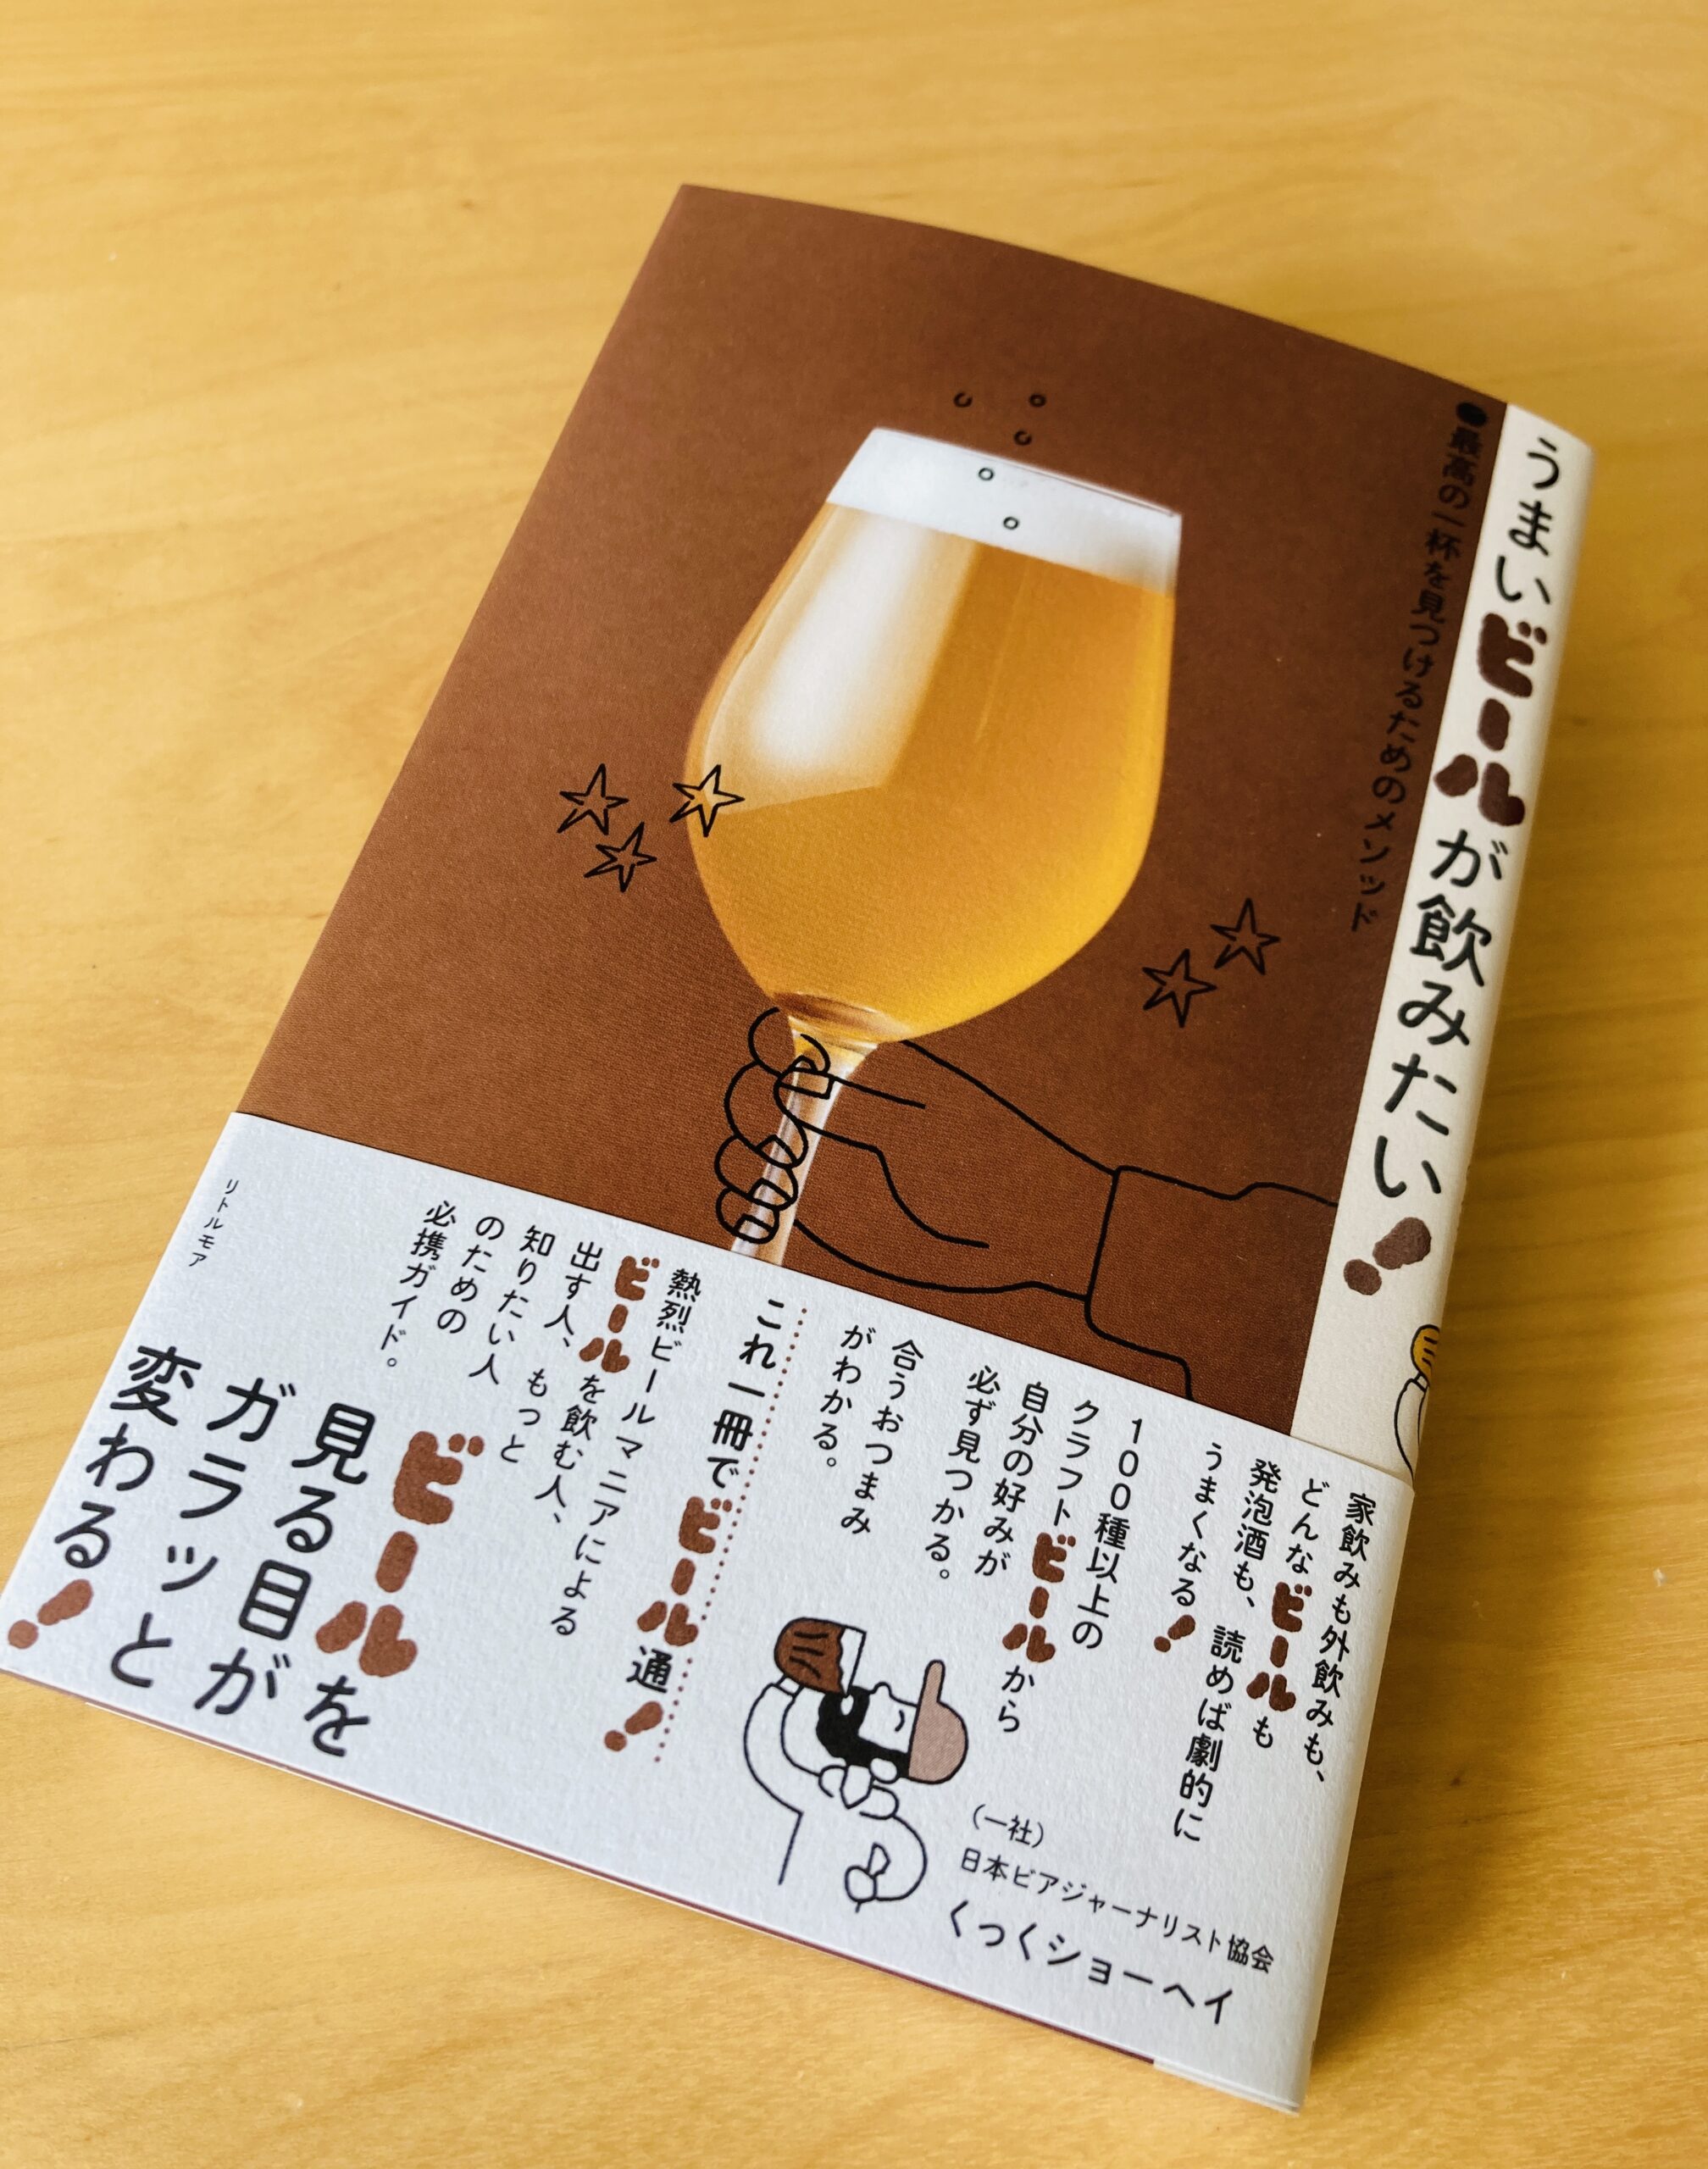 うまいビールが飲みたい!
●最高の一杯を見つけるためのメソッド
家飲みも外飲みも、
どんなビールも
発泡酒も、読めば劇的に
うまくなる!
100種以上の
クラフトビールから
自分の好みが
必ず見つかる。
合うおつまみ
がわかる。
これ一冊でビール通!
熱烈ビールマニアによる
ビールを飲む人、
出す人、もっと
知りたい人
のための
必携ガイド。
ビールを
見る目が
ガラッと
変わる!
(一社)
日本ビアジャーナリスト協会
くっくショーヘイ
リトルモア